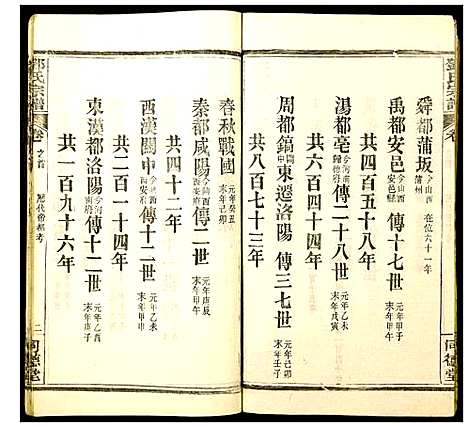 鄧氏宗譜 卷一
舜都蒲坂 今山西蒲州 在位六十一年
禹都安邑 今山西安邑縣 傳十七世 元年甲子 末年甲午
共四百五十八年
湯都亳 今河南歸德府 傳二十八世 元年乙未 末年戊寅
共六百四十四年
周都鎬 關中 東遷洛陽 傳三七世 元年己卯 末年壬子
共八百七十三年
同德堂
春秋戰國 元年癸丑 末年己卯
秦都咸陽 今陝西西安府 傳二世 元年庚辰 末年甲午
共四十二年
西漢關中 今陝西西安府 傳十二世 元年乙未 末年甲申
共二百一十四年
東漢都洛陽 今河南河南府 傳十二世 元年乙酉 末年庚子
共一百九十六年
鄧氏宗譜 卷一 之首 歷代帝都考 二 同德堂